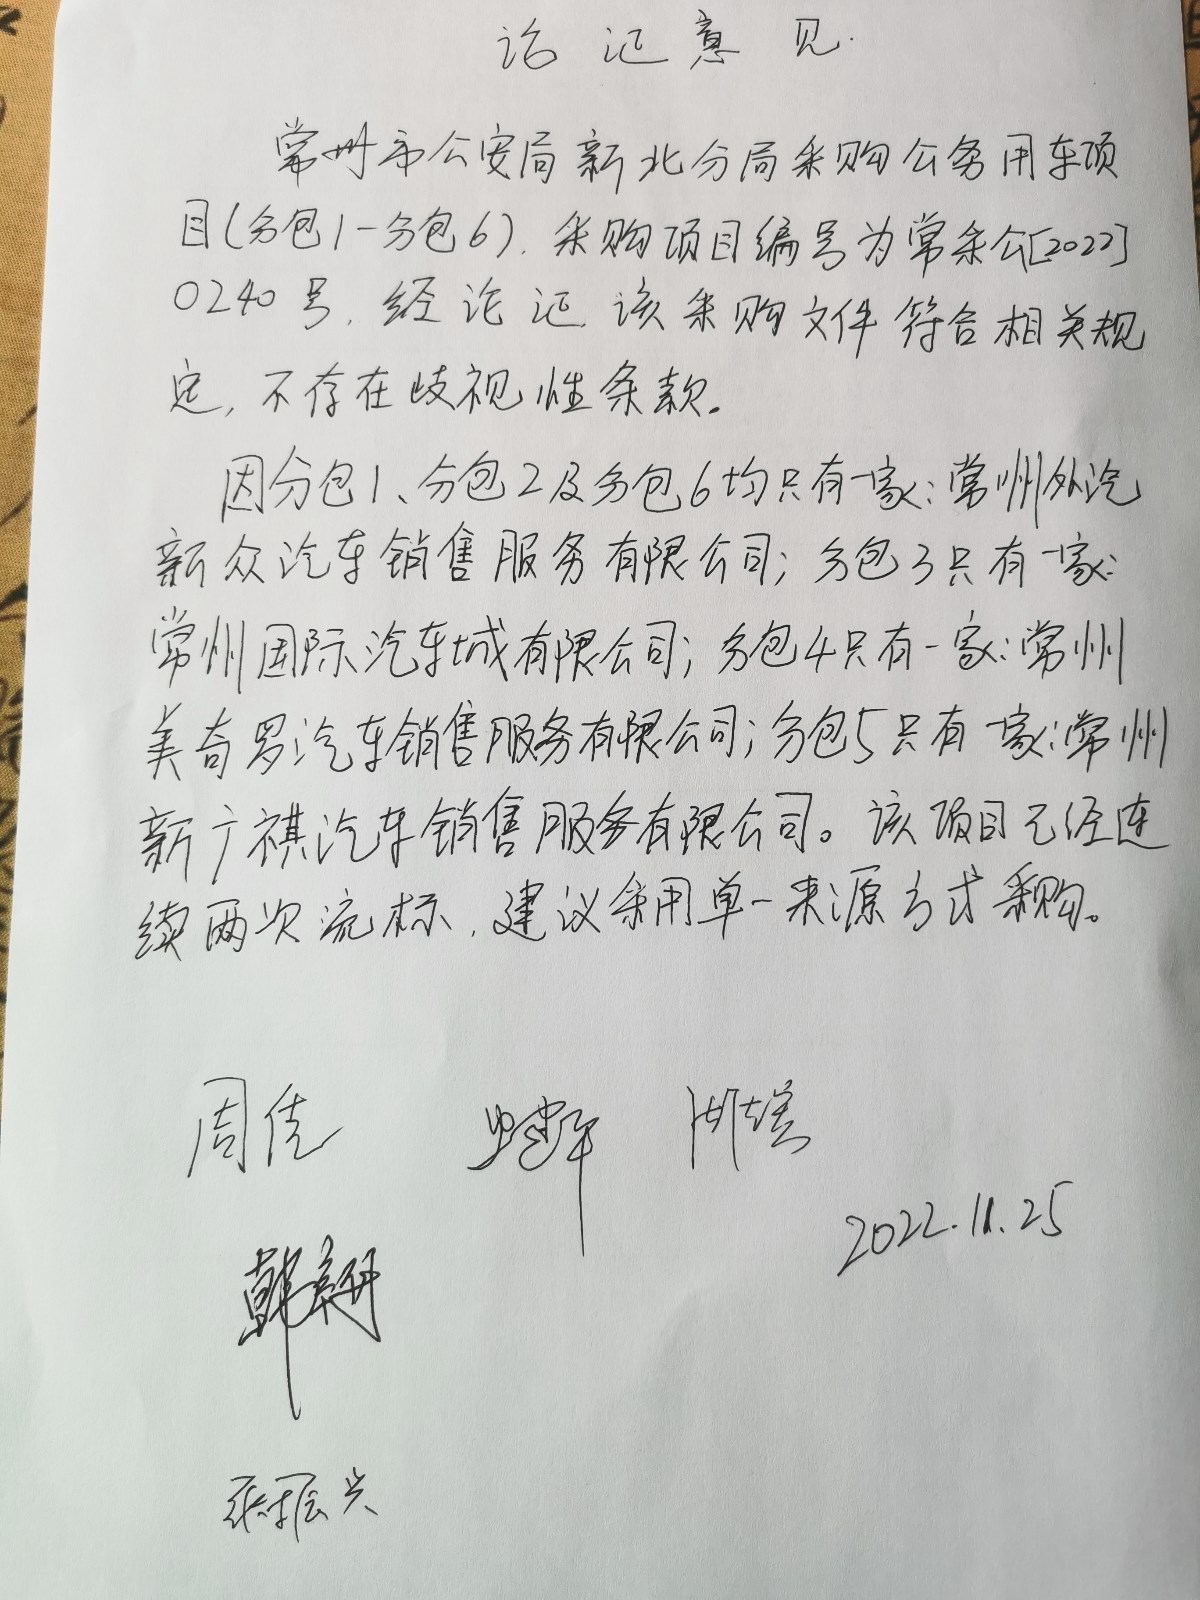 论证意见
常州市公安局新北分局采购公务用车项
目(分包1-分包6),采购项目编号为常采公[2022]
0240号,经论证,该采购文件符合相关规
定,不存在歧视性条款。
因分包1、分包2及分包6均只有一家:常州外汽
新众汽车销售服务有限公司;分包3只有一家:
常州国际汽车城有限公司;分包4只有一家:常州
美奇罗汽车销售服务有限公司;分包5只有一家:常州
新广祺汽车销售服务有限公司。该项目已经连
续两次流标,建议采用单一来源方式采购。
周佳
2022.11.25
张振兴